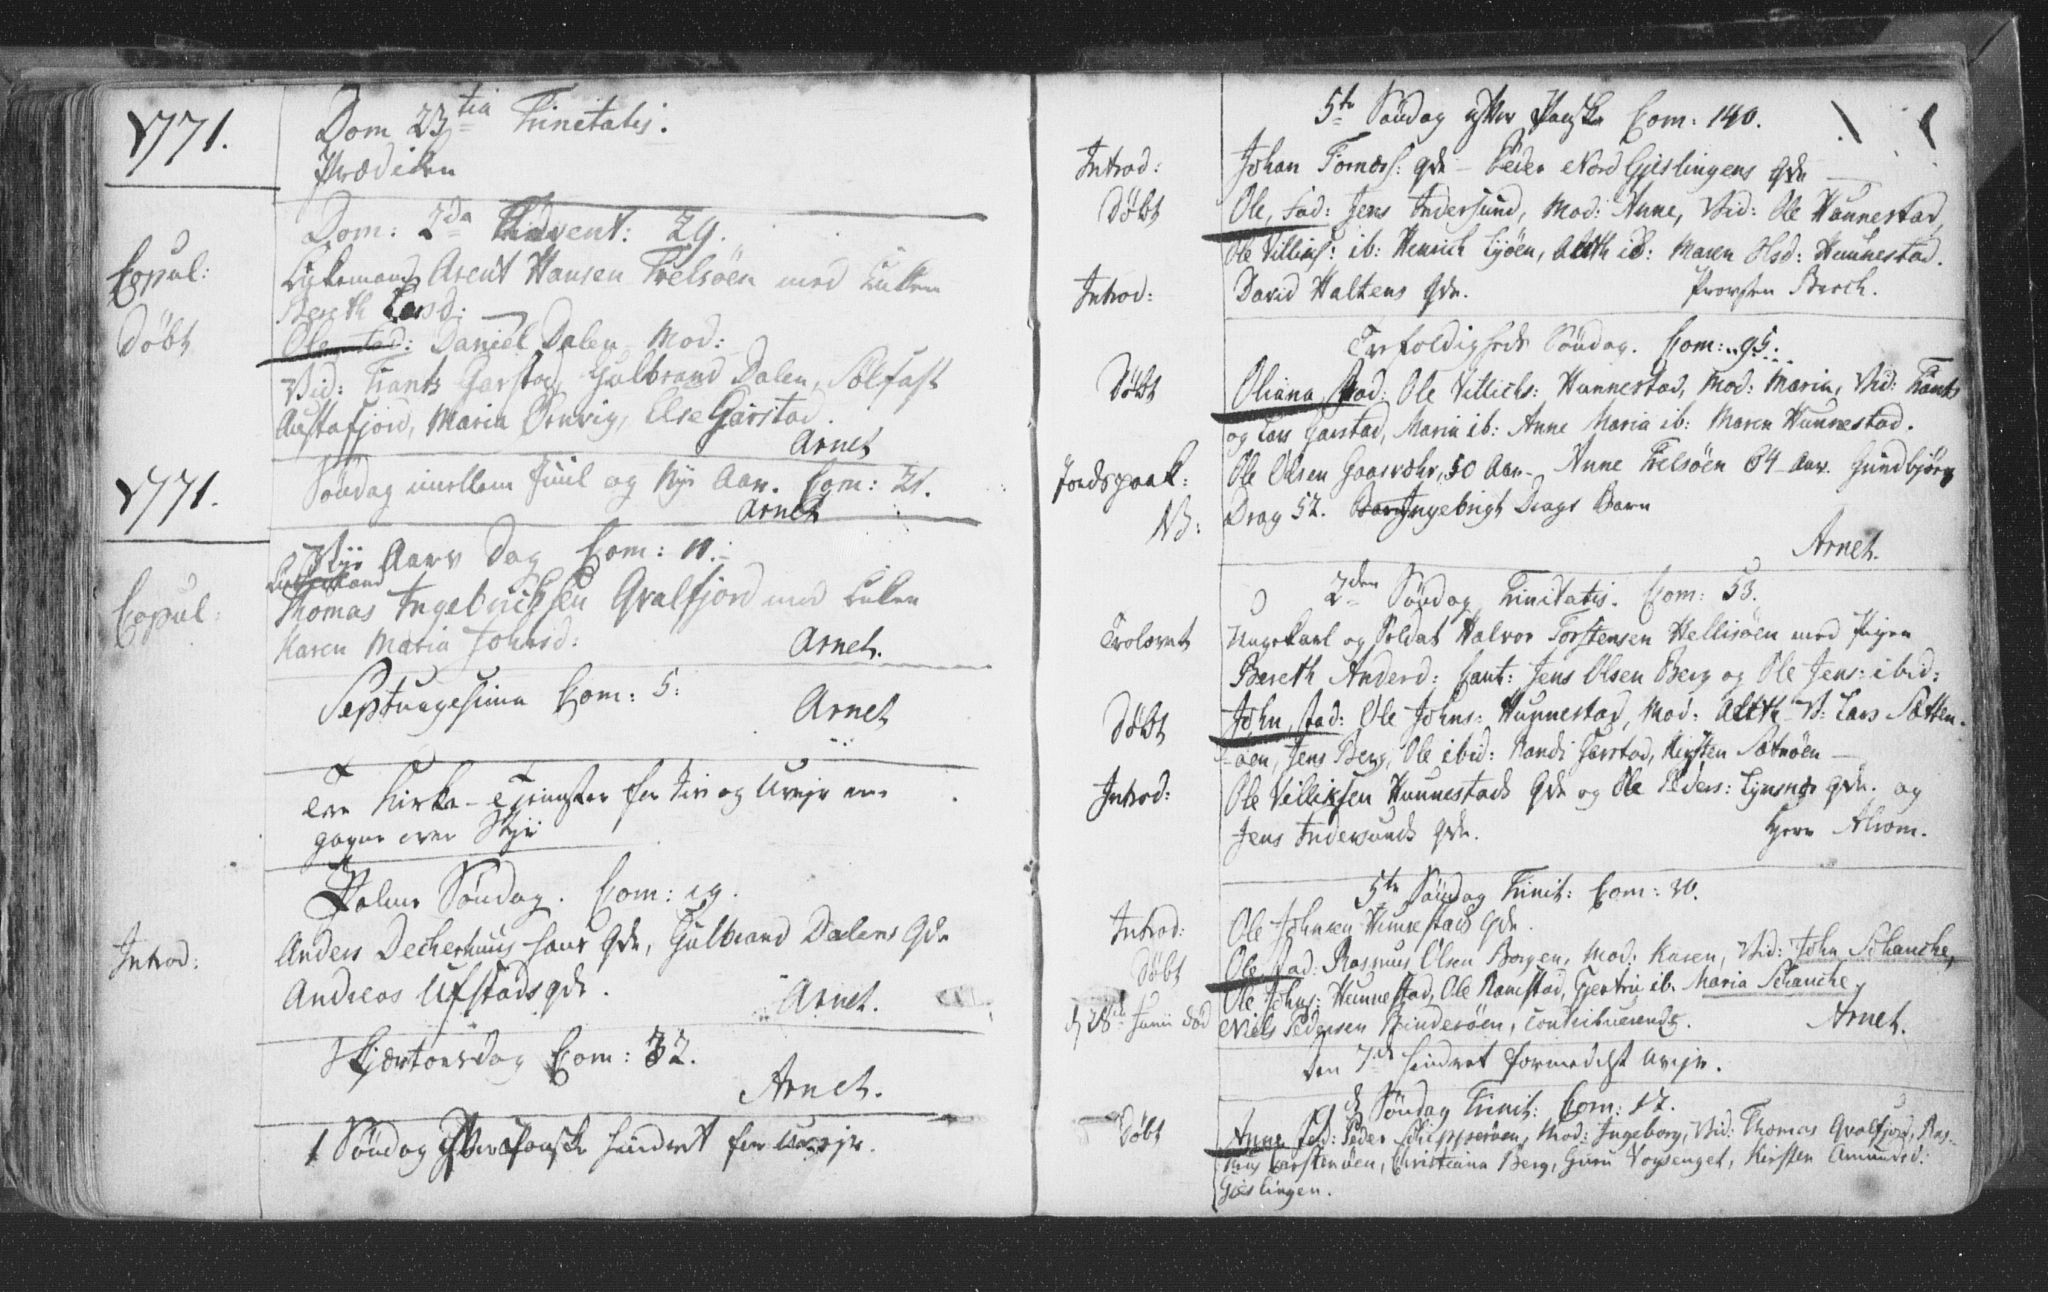 1771.
Dom 23tia Trinetatis.
Prædiken
Dom: 2da Advent: 29.
Copul:
Enkemand Arent Hansen Trelsöen med Enken
Bereth Larsd:
Döbt
Ole, Fad: Daniel Dalen Mod:
Vid: Frants Garstad, Gulbrand Dalen, Solfast
Austafjord, Maria Ørnvig, Else Garstad.
Arnet
1771.
Söndag imellem Juul og Nye Aar. Com: 21.
Arnet
Nye Aars Dag Com: 11.
Enkemand
Copul:
Thomas Ingebrichsen Qvalfjord med Enken
Karen Maria Johnsd:
Arnet.
Septuagesima Com: 5:
Arnet
Tre Kirke-Tienester for Iis og Uveir ere
gagne over Styr
Palme Söndag. Com: 19.
Introd:
Anders Deckerhuus hans Qde, Gulbrand Dalens Qde
Andreas Ufstads qde.
Arnet.
Skjærtorsdag Com: 32.
Arnet.
1 Söndag efter Paaske hindret for Uveir.
5te Söndag efter Paaske Com: 140.
Introd:
Johan Fornæss: qde - Peder Nord Gjeslingens qde
Döbt
Ole, Fad: Jens Indersund, Mod: Anne, Vid: Ole Hunnestad,
Ole Villiks: ib: Henrich Lyöen, Aleth ib: Maren Olsd: Hunnestad.
Introd:
David Haltens Qde.
Provsten Berch.
Trefoldigheds Söndag. Com: 95.
Döbt
Oliana, Fad: Ole Villichs: Hunnestad, Mod: Maria, Vid: Frants
og Lars Garstad, Maria ib: Anne Maria ib: Maren Hunnestad.
Jordspaak:
Ole Olsen Gaasvær, 50 Aar - Anne Trelsöen 64 Aar. Gundbjör
NB:
Drag 52. Ingebrigt Drags Barn
Arnet.
2den Söndag Trinitatis. Com: 53.
Trolovet
Ungekarl og Soldat Halvor Torstensen Hellisöen med Pigen
Bereth Andersd: Caut: Jens Olsen Berg og Ole Jens: ibid:
Döbt
John, Fad: Ole Johns: Hunnestad, Mod: Aleth V: Lars Sætten-
öen, Jens Berg, Ole ibid: Randi Garstad, Kirsten Sætnöen
Introd:
Ole Villiksen Hunnestads Qde og Ole Peders: Lynsnæs qde. og
Jens Indersunds qde.
Herr Alrom.
5te Söndag Trinit: Com: 20.
Introd:
Ole Johnsen Hunnestads qde.
Döbt
Ole, Fad: Rasmus Olsen Borgen, Mod: Karen, Vid: John Schanche,
Ole Johns: Hunnestad, Ole Ramstad, Gjertru ib. Maria Schanche
d 28de Junii död
Niels Pedersen Bindesöen, Contribuerende.
Arnet.
Den 7de hindret formedelst Uveir.
8 Söndag Trinit: Com: 17.
Döbt
Anne, Fad: Peder Skipperöen, Mod: Ingeborg, Vid: Thomas Qvalfjord, Ras-
mus Carstenöen, Christiana Berg, Guru Voxenget, Kirsten Amundsd:
Gieslingen.